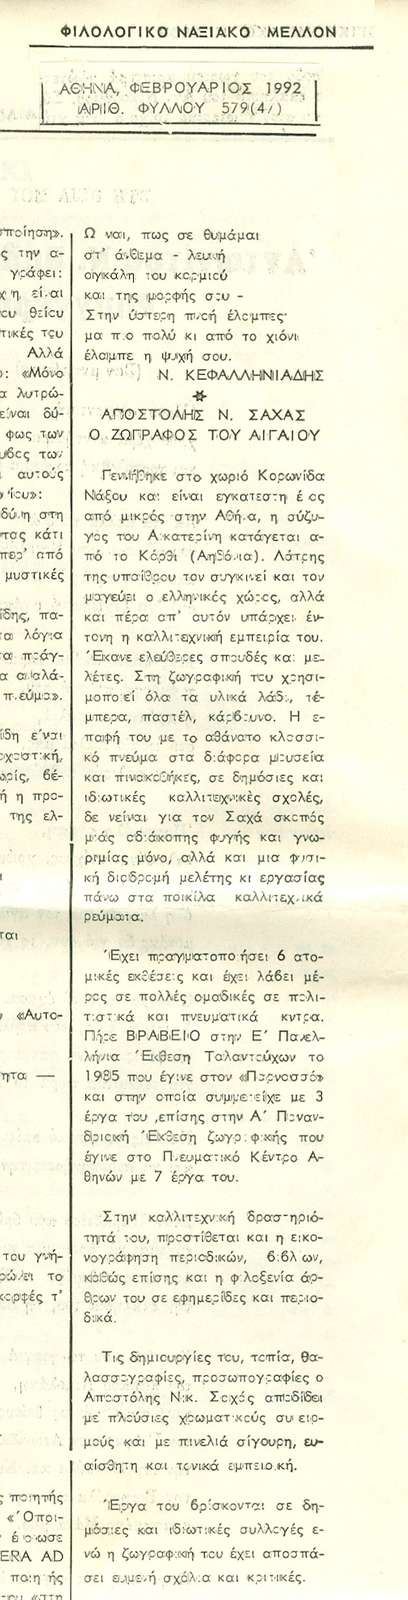 ΦΙΛΟΛΟΓΙΚΟ ΝΑΞΙΑΚΟ ΜΕΛΛΟΝ
ΑΘΗΝΑ, ΦΕΒΡΟΥΑΡΙΟΣ 1992
ΑΡΙΘ. ΦΥΛΛΟΥ 579(4/)
ποίηση».
ς την α-
γράφει:
είναι
θείου
τικές του
Αλλά
«Μόνο
λυτρώ-
είναι δύ-
φως των
των
αυτούς
στη
κάτι
περ' από
μυστικές
πα-
λόγια
πράγ-
πνεύμα».
είναι
θέ-
ή η προ-
της ελ-
ται
«Αυτο-
ητα —
του γνή-
το
μορφές τ'
ποιητής
«Όπρι-
ERA AD
ποιητής
«στη
Ω ναι, πως σε θυμάμαι
στ' άνθεμα - λευκή
αγκάλη του κορμιού
και της μορφής σου -
Στην ύστερη πνοή έλαμπες
μα πιο πολύ κι από το χιόνι
έλαμπε η ψυχή σου.
Ν. ΚΕΦΑΛΛΗΝΙΑΔΗΣ
ΑΠΟΣΤΟΛΗΣ Ν. ΣΑΧΑΣ
Ο ΖΩΓΡΑΦΟΣ ΤΟΥ ΑΙΓΑΙΟΥ
Γεννήθηκε στο χωριό Κορωνίδα
Νάξου και είναι εγκατεστημένος
από μικρός στην Αθήνα, η σύζυ-
γος του Αικατερίνη κατάγεται α-
πό το Κόρθι (Αηδόνια). Λάτρης
της υπαίθρου τον συγκινεί και τον
μαγεύει ο ελληνικός χώρος, αλλά
και πέρα απ' αυτόν υπάρχει έν-
τονη η καλλιτεχνική εμπειρία του.
Έκανε ελεύθερες σπουδές και με-
λέτες. Στη ζωγραφική του χρησι-
μοποιεί όλα τα υλικά λάδι, τέ-
μπερα, παστέλ, κάρβουνο. Η ε-
παφή του με το αθάνατο κλασσι-
κό πνεύμα στα διάφορα μουσεία
και πινακοθήκες, σε δημόσιες και
ιδιωτικές καλλιτεχνικές σχολές,
δε νείναι για τον Σαχά σκοπός
μιάς αδιάκοπης φυγής και γνω-
ριμίας μόνο, αλλά και μια φυσι-
κή διαδρομή μελέτης κι εργασίας
πάνω στα ποικίλα καλλιτεχνικά
ρεύματα.
Έχει πραγματοποιήσει 6 ατο-
μικές εκθέσεις και έχει λάβει μέ-
ρος σε πολλές ομαδικές σε πολι-
τιστικά και πνευματικά κντρα.
Πήρε ΒΡΑΒΕΙΟ στην Ε' Πανελ-
λήνια Έκθεση Ταλαντούχων το
1985 που έγινε στον «Παρνασσό»
και στην οποία συμμετείχε με 3
έργα του ,επίσης στην Α' Παναν-
δριακή Έκθεση ζωγραφικής που
έγινε στο Πνευματικό Κέντρο Α-
θηνών με 7 έργα του.
Στην καλλιτεχνική δραστηριό-
τητά του, προστίθεται και η εικο-
νογράφηση περιοδικών, βιβλίων,
καθώς επίσης και η φιλοξενία άρ-
θρων του σε εφημερίδες και περιο-
δικά.
Τις δημιουργίες του, τοπία, θα-
λασσογραφίες, προσωπογραφίες ο
Αποστόλης Νικ. Σαχάς αποδίδει
με πλούσιες χρωματικούς συνειρ-
μούς και με πινελιά σίγουρη, ευ-
αίσθητη και τονικά εμπειρική.
Έργα του βρίσκονται σε δη-
μόσιες και ιδιωτικές συλλογές ε-
νώ η ζωγραφική του έχει αποσπά-
σει ευμενή σχόλια και κριτικές.